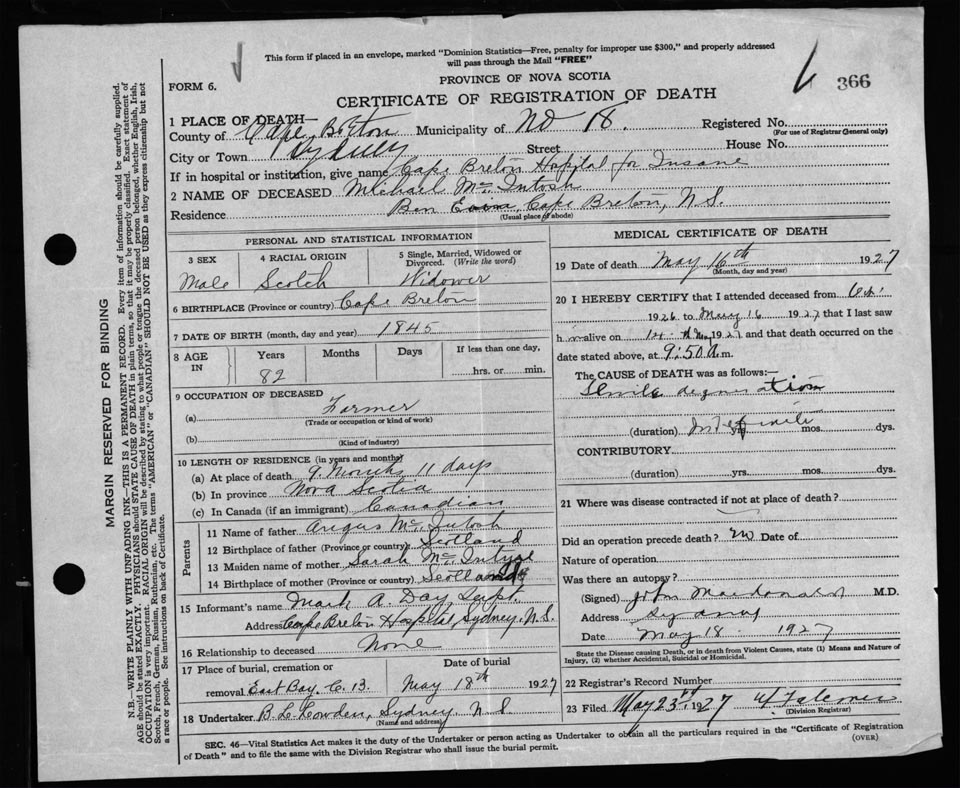 This form if placed in an envelope, marked "Dominion Statistics—Free, penalty for improper use $300," and properly addressed
will pass through the Mail "FREE"
FORM 6.
PROVINCE OF NOVA SCOTIA
366
CERTIFICATE OF REGISTRATION OF DEATH
1 PLACE OF DEATH—
County of Cape Breton Municipality of No 18. Registered No.
(For use of Registrar General only)
City or Town Sydney Street House No.
If in hospital or institution, give name Cape Breton Hospital for Insane
2 NAME OF DECEASED Michael McIntosh
Residence Ben Eoin, Cape Breton, N.S.
(Usual place of abode)
PERSONAL AND STATISTICAL INFORMATION
3 SEX 4 RACIAL ORIGIN 5 Single, Married, Widowed or Divorced. (Write the word)
Male Scotch Widower
6 BIRTHPLACE (Province or country) Cape Breton
7 DATE OF BIRTH (month, day and year) 1845
8 AGE IN Years Months Days If less than one day,
82 hrs. or min.
9 OCCUPATION OF DECEASED
(a) Farmer
(Trade or occupation or kind of work)
(b)
(Kind of industry)
10 LENGTH OF RESIDENCE (in years and months)
(a) At place of death 9 Months 11 days
(b) In province Nova Scotia
(c) In Canada (if an immigrant) Canadian
Parents
11 Name of father Angus McIntosh
12 Birthplace of father (Province or country) Scotland
13 Maiden name of mother Sarah McIntyre
14 Birthplace of mother (Province or country) Scotland
15 Informant's name Mark A. Day Supt.
Address Cape Breton Hospital, Sydney, N.S.
16 Relationship to deceased None
17 Place of burial, cremation or Date of burial
removal East Bay, C.B. May 18th 1927
18 Undertaker B.L. Lowden, Sydney. N S
(Name and address)
MEDICAL CERTIFICATE OF DEATH
19 Date of death May 16th 1927
(Month, day and year)
20 I HEREBY CERTIFY that I attended deceased from
1926 to May 16 1927 that I last saw
him alive on May 1927 and that death occurred on the
date stated above, at 9:50 a.m.
The CAUSE of DEATH was as follows:—
Senile degeneration
(duration) Indefinite yrs. mos. dys.
CONTRIBUTORY
(duration) yrs. mos. dys.
21 Where was disease contracted if not at place of death?
Did an operation precede death? Date of
Nature of operation
Was there an autopsy?
(Signed) John Macdonald M.D.
Address Sydney
Date May 18 1927
State the Disease causing Death, or in death from Violent Causes, state (1) Means and Nature of
Injury, (2) whether Accidental, Suicidal or Homicidal.
22 Registrar's Record Number
23 Filed May 23rd 1927 Falconer
(Division Registrar)
SEC. 46—Vital Statistics Act makes it the duty of the Undertaker or person acting as Undertaker to obtain all the particulars required in the "Certificate of Registration
of Death" and to file the same with the Division Registrar who shall issue the burial permit. (OVER)
MARGIN RESERVED FOR BINDING
N.B.—WRITE PLAINLY WITH UNFADING INK—THIS IS A PERMANENT RECORD. Every item of information should be carefully supplied.
AGE should be stated EXACTLY. PHYSICIANS should STATE CAUSE OF DEATH in plain terms, so that it may be properly classified. Exact statement of
OCCUPATION is very important. RACIAL ORIGIN will be described by stating to what people or tongue the deceased person belonged, whether English, Irish,
Scotch, French, German, Russian, Ruthenian, etc. The terms "AMERICAN" or "CANADIAN" SHOULD NOT BE USED as they express citizenship but not
a race or people. See instructions on back of Certificate.